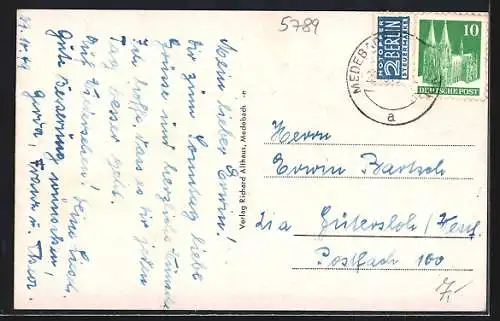 27.10.49
5789
Mein lieber Erwin!
Dir zum Sonntag liebe
Grüsse und herzliche Wünsche
Ich hoffe, dass es dir jeden
Tag besser geht.
Auf Wiedersehen! Deine
Gute Besserung wünschen
Gerda, Franz u.
Verlag Richard Althaus, Medebach
NOTOPFER
2 BERLIN
STEUERMARKE
MEDEBACH
a
10
DEUTSCHE POST
Herrn
Erwin Bartsch
Gütersloh / Westf.
Postfach 100